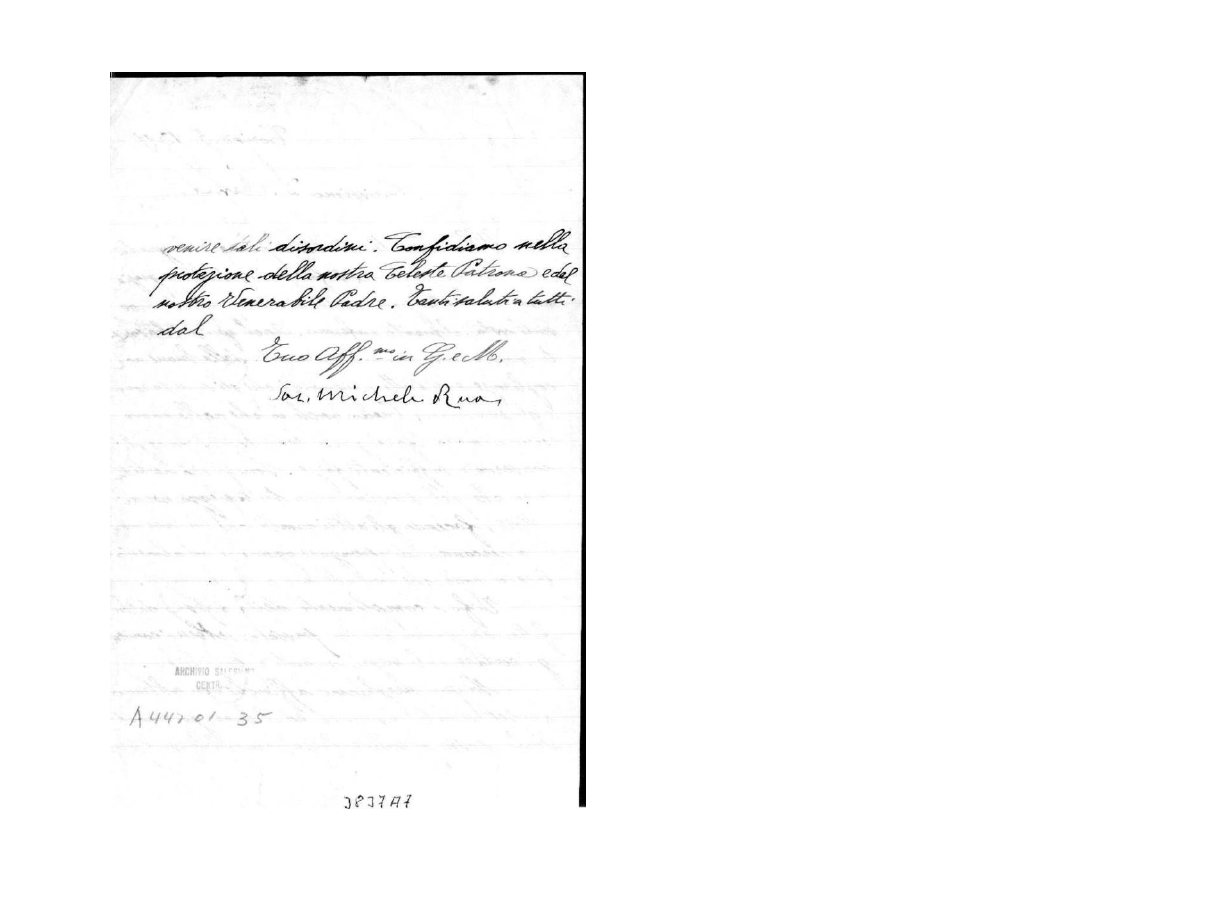 venire tali disordini. Confidiamo nella
protezione della nostra Celeste Patrona e del
nostro Venerabile Padre. Tanti saluti a tutti
dal
Tuo Aff.mo in G. e M.
Sac. Michele Rua
ARCHIVIO SALESIANO
CENTR
A442 01 35
3837A7